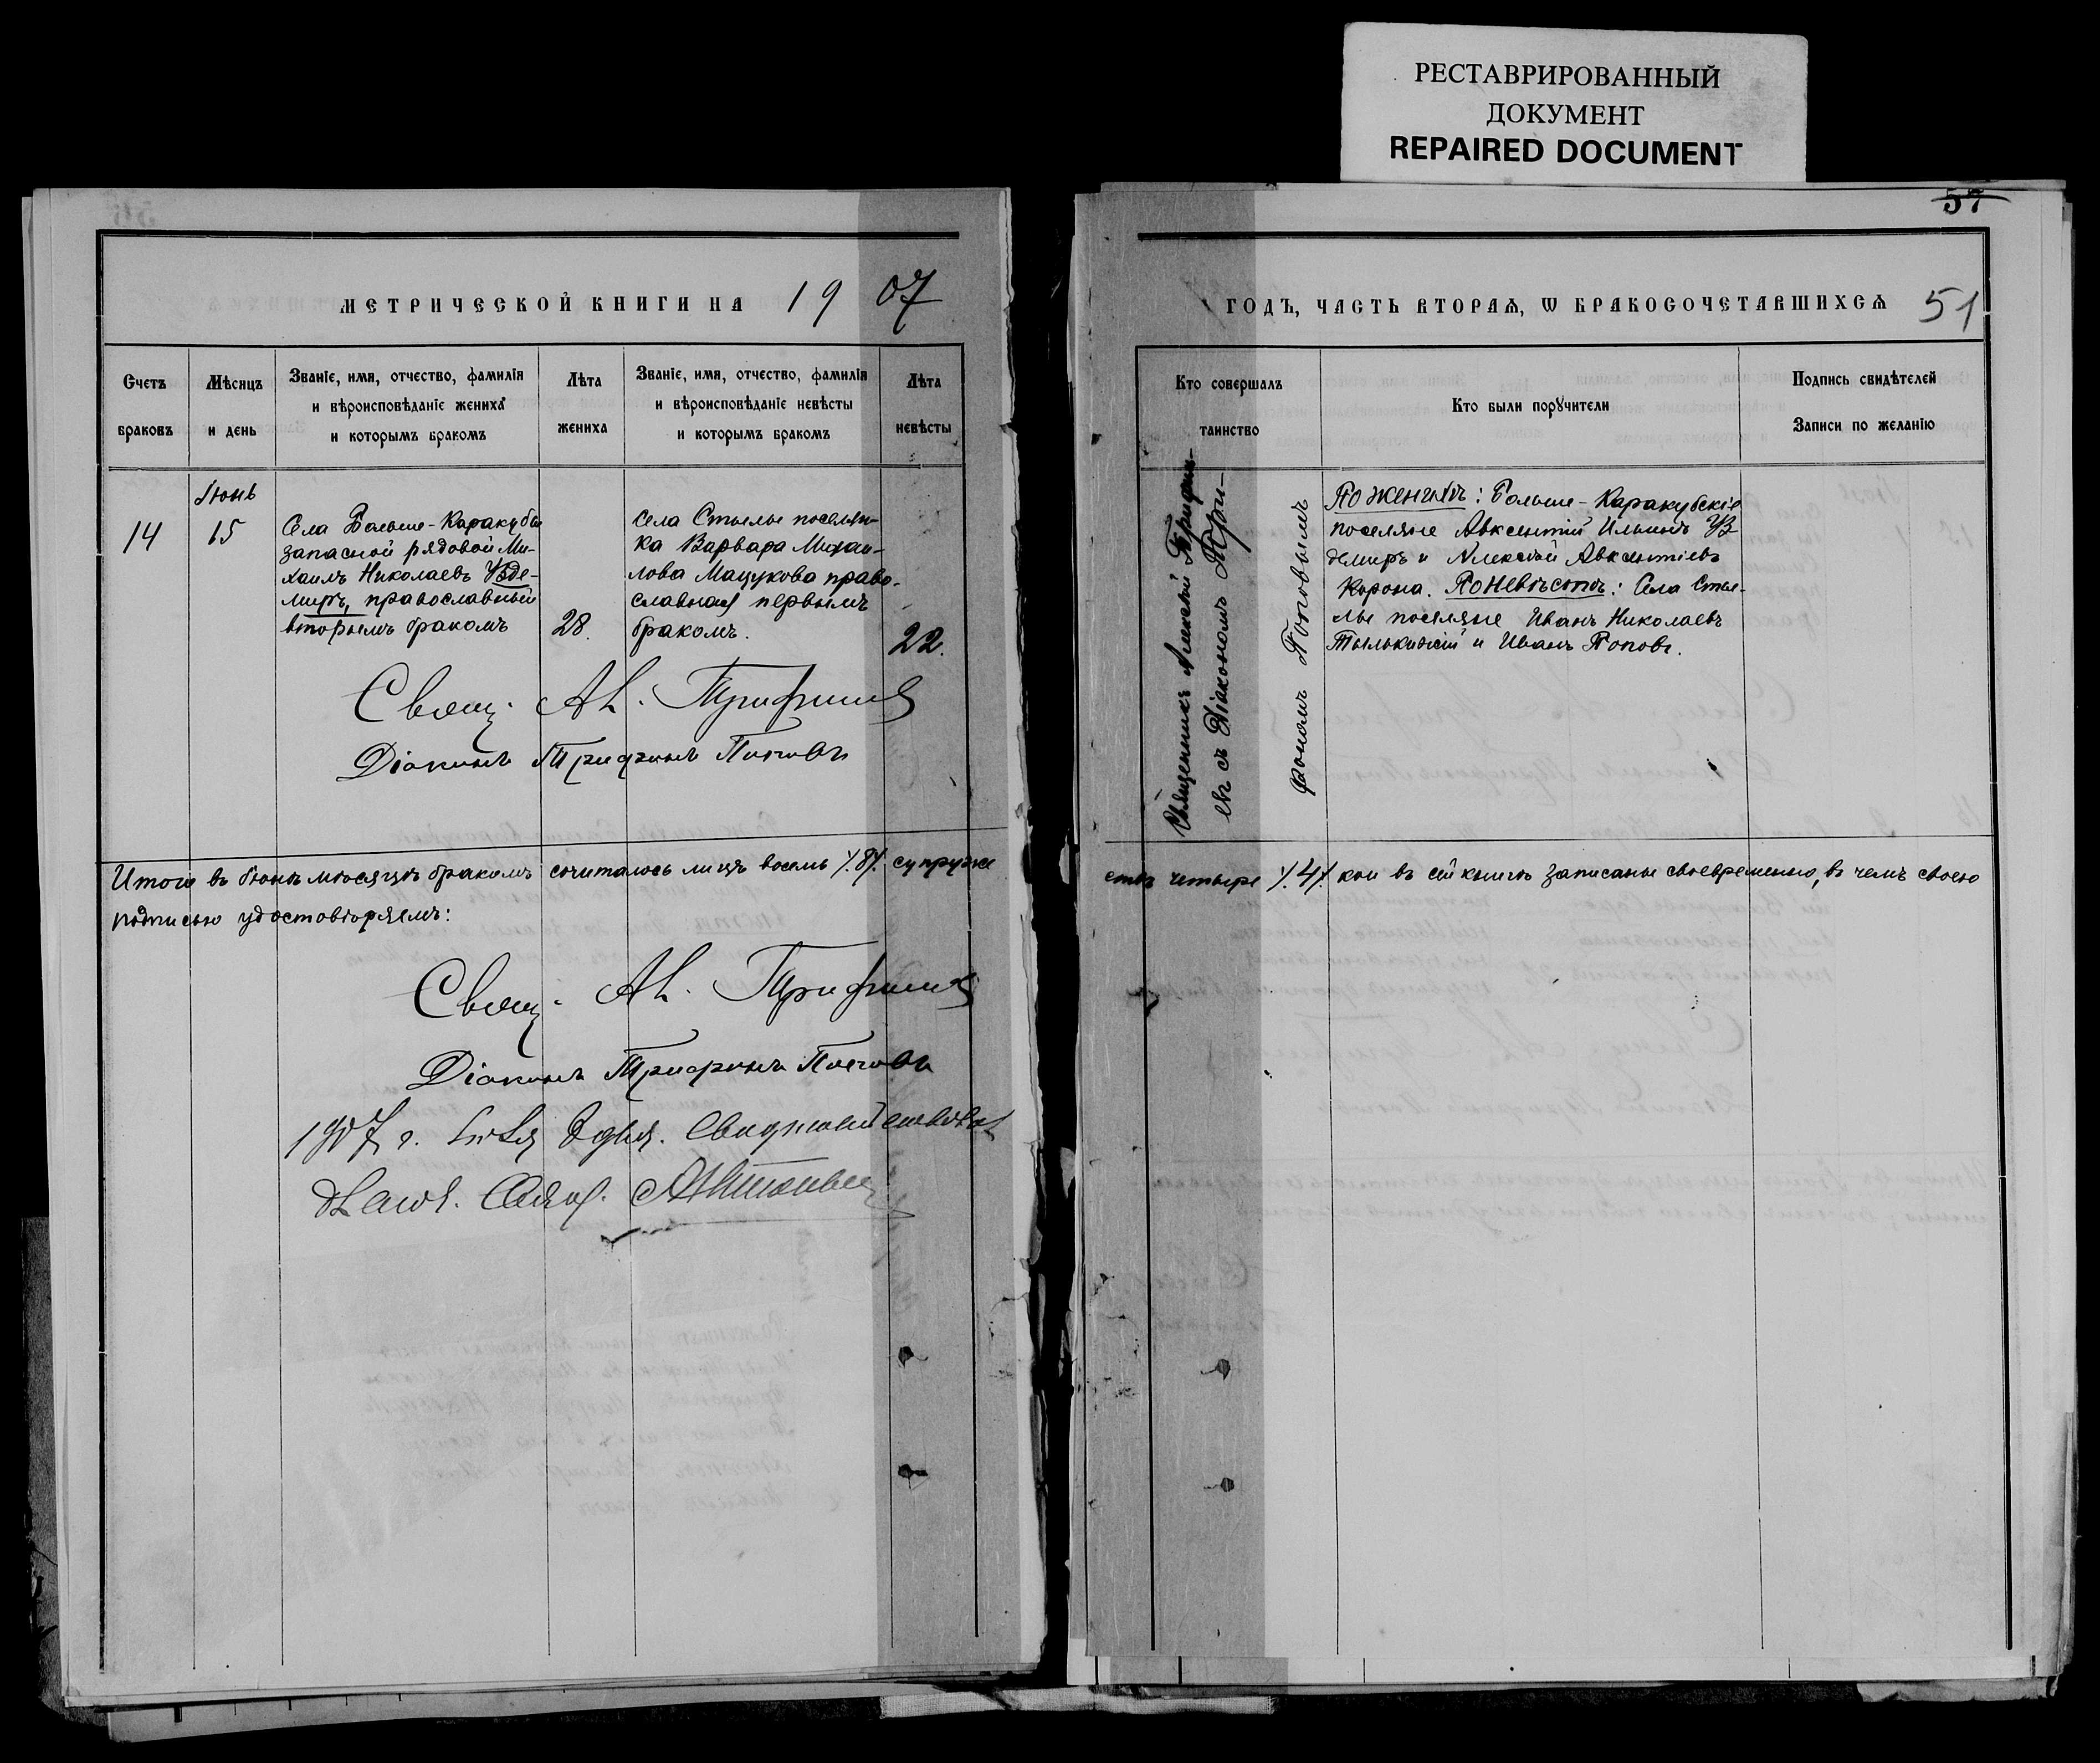 РЕСТАВРИРОВАННЫЙ
ДОКУМЕНТ
REPAIRED DOCUMENT
МЕТРИЧЕСКОЙ КНИГИ НА 1907
Счетъ браковъ
Мѣсяцъ и день
Званіе, имя, отчество, фамилія
и вѣроисповѣданіе жениха
и которымъ бракомъ
Лѣта жениха
Званіе, имя, отчество, фамилія
и вѣроисповѣданіе невѣсты
и которымъ бракомъ
Лѣта невѣсты
14
Іюнь
15
Села Больше-Каракубы
запасной рядовой Ми-
хаилъ Николаевъ Узде-
миръ, православный
вторымъ бракомъ
28.
Села Стылы поселян-
ка Варвара Михаи-
лова Мацукова право-
славная первымъ
бракомъ.
22.
Свящ. Ал. Трифильевъ
Діаконъ Трифонъ Поповъ
Итого въ Іюнѣ мѣсяцѣ бракомъ сочиталось лицъ восемь /.8/. супруже
подписью удостовѣряемъ:
Свящ. Ал. Трифильевъ
Діаконъ Трифонъ Поповъ
1907 г. Іюля дня. Свидѣтельствовалъ
57
ГОДЪ, ЧАСТЬ ВТОРАЯ, Ѡ БРАКОСОЧЕТАВШИХСЯ
51
Кто совершалъ
таинство
Кто были порꙋчители
Подпись свидѣтелей
Записи по желанію
Священникъ Алексѣй Трифиль-
евъ съ Діакономъ Три-
фономъ Поповымъ
По женихѣ: Больше-Каракубскіе
поселяне Авксентій Ильинъ Уз-
демиръ и Алексѣй Авксентіевъ
Корона. По невѣстѣ: Села Сты-
лы поселяне Иванъ Николаевъ
и Иванъ Поповъ.
ствъ четыре /.4/. кои въ сей книгѣ записаны своевременно, въ чемъ своею